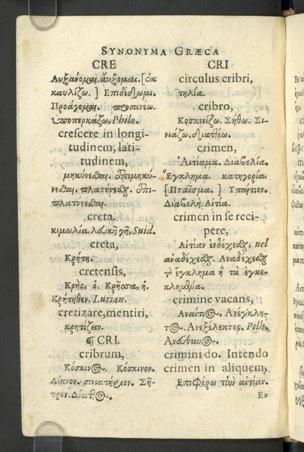 SYNONYMA GRÆCA
CRE
Αὐξάνομαι. αὔξομαι. [ἐκ
καυλίζω. ] Ἐπιδίδωμι.
Προάγομαι.
Philo.
crescere in longi-
tudinem, lati-
tudinem,
μηκύνεσθαι. ἐπιμηκύ-
νεσθαι. πλατύνεσθαι. ἐπι-
πλατύνεσθαι.
creta,
κιμωλία. λευκὴ γῆ, Suid.
creta,
Κρήτη.
cretensis,
Κρὴς, ὁ. Κρῆσσα, ἡ.
Κρήτηθεν. Lucian.
cretizare, mentiri,
κρητίζειν.
¶ CRI.
cribrum,
Κόσκινον. Κόσκινον.
Λίκνον. σινιατήριον. Σῆ-
CRI
circulus cribri,
τηλία.
cribro,
Κοσκινίζω. Σήθω. Σι-
νιάζω. διαττάω.
crimen,
Αἰτίαμα. Διαβολία.
Ἔγκλημα. κατηγορία.
[Πταῖσμα. ] Ὑπαίτιον.
Διαβολή. Αἰτία.
crimen in se reci-
pere,
Αἰτίαν ἐνδέχεσθαι, vel
ἀναδέχεσθαι. Ἀναδέχεσθαι
τὸ ἔγκλημα ἢ τὰ ἐγκε-
crimine vacans,
Ἀναίτιος. Ἀνέγκλη-
τος. Ἀνεξέλεγκτος.
criminido. Intendo
crimen in aliquem,
Ἐπιφέρω τὴν αἰτίαν.